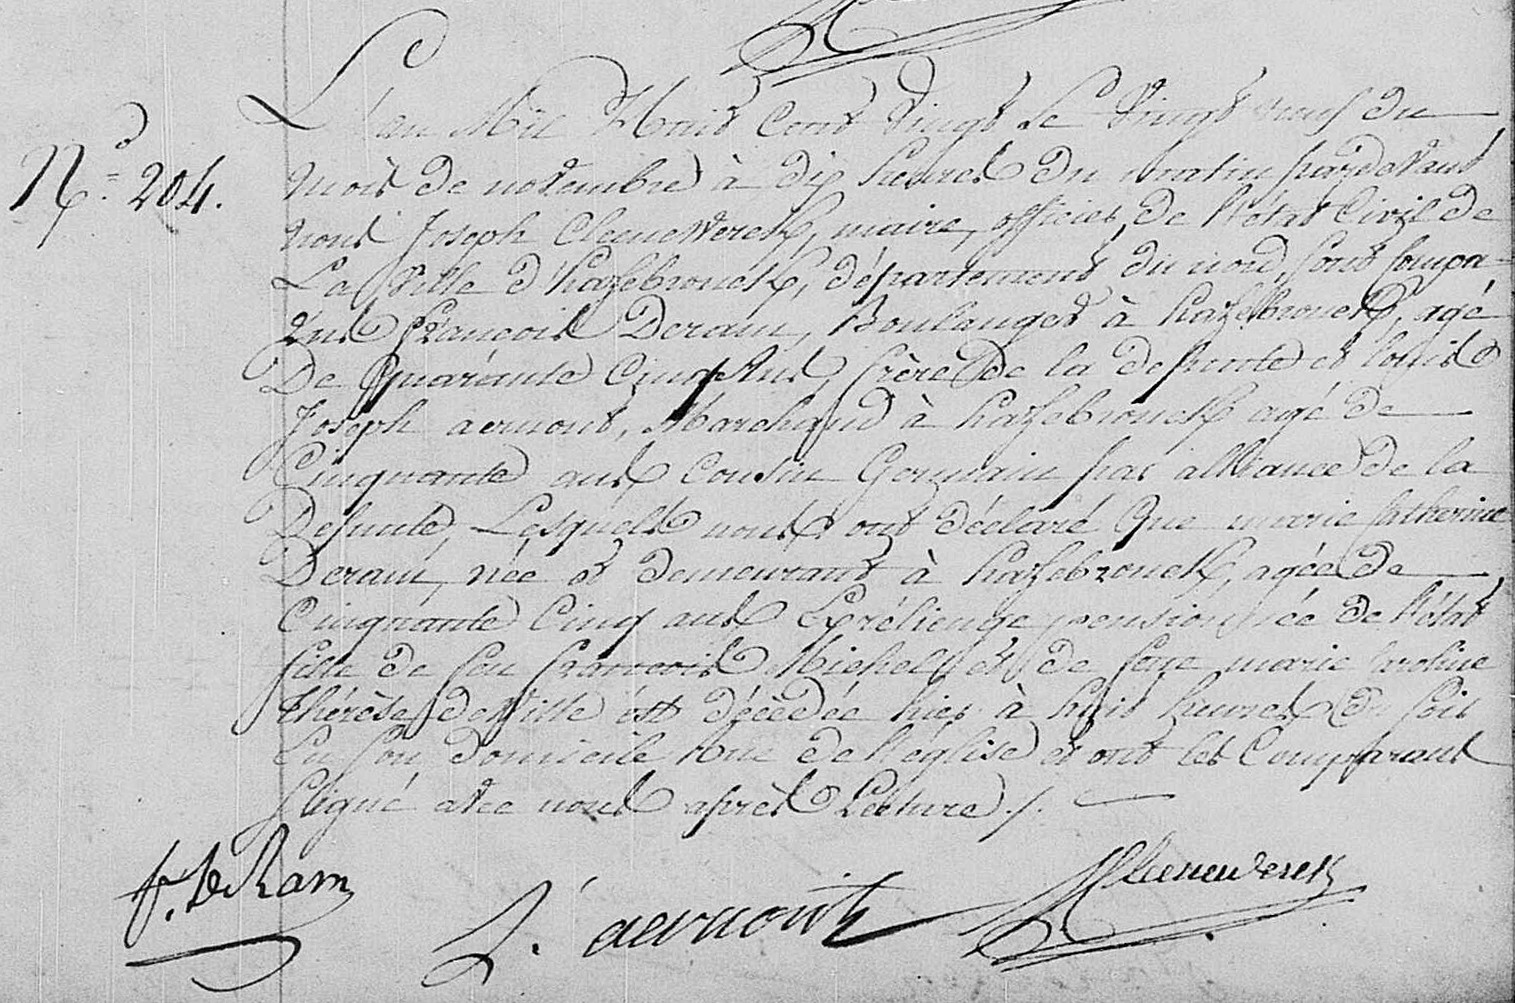 N.º 204.
L'an Mil Huit Cent Vingt Le Vingt neuf du
mois de novembre à dix heures du matin pardevant
nous Joseph Cleenewerck, maire, officier de l'état Civil de
La Ville d'hazebrouck, département du nord, sont Compa-
rus François Deram, Boulanger à hazebrouck, agé
De quarante Cinq Ans, frère De la defunte et louis
Joseph aernout, Marchand à hazebrouck agé de
Cinquante ans Cousin Germain par alliance De la
Defunte, Lesquels nous ont déclaré Que marie Catherine
Deram, née et demeurant à hazebrouck, agée De
Cinquante Cinq ans Exréligeuse pensionnée de l'état
fille de feu francois Michel et de feue marie
thérèse deVitte est décèdée hier à huit heures du soir
En son domicile Rue de l'église et ont les Comparans
signé avec nous après Lecture ./.
f. De Ram
L. aernout
Cleenewerck